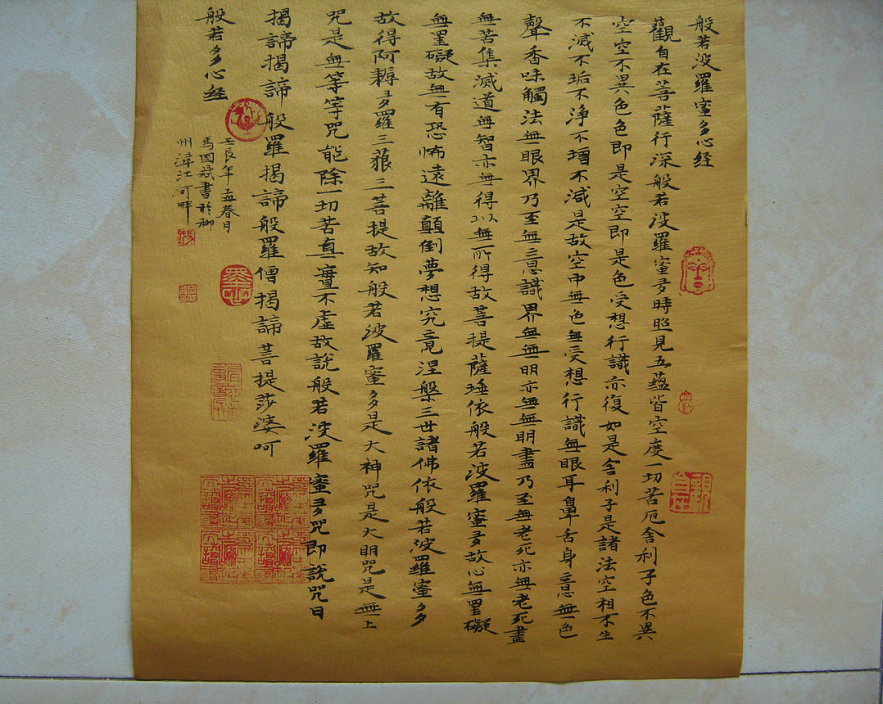 般若波羅蜜多心经
觀自在菩薩行深般若波羅蜜多時照見五蘊皆空度一切苦厄舍利子色不異
空空不異色色即是空空即是色受想行識亦復如是舍利子是諸法空相不生
不滅不垢不净不增不減是故空中無色無受想行識無眼耳鼻舌身意無色
聲香味觸法無眼界乃至無意識界無無明亦無無明盡乃至無老死亦無老死盡
無苦集滅道無智亦無得以無所得故菩提薩埵依般若波羅蜜多故心無罣礙
無罣礙故無有恐怖遠離顛倒夢想究竟涅槃三世諸佛依般若波羅蜜多
故得阿耨多羅三藐三菩提故知般若波羅蜜多是大神咒是大明咒是無上
咒是無等等咒能除一切苦真實不虛故說般若波羅蜜多咒即說咒曰
揭諦揭諦般羅揭諦般羅僧揭諦菩提莎婆呵
般若多心經
壬辰年孟春月
馬國書於柳
州江河畔
觀自在